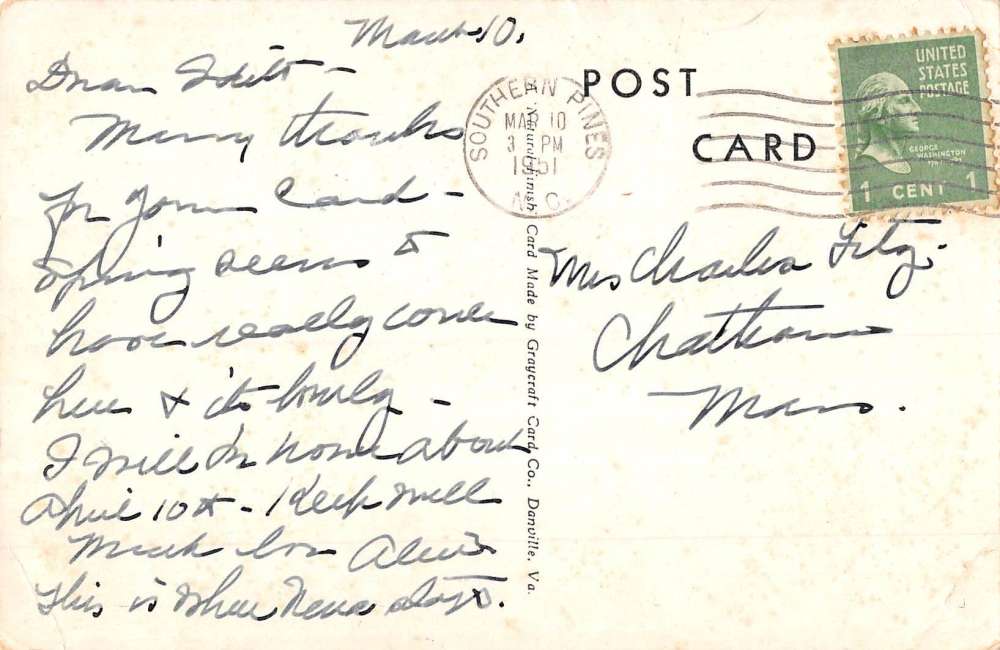 March 10.
Dear Edith –
Many thanks
for your card –
Spring seems to
have really come
here & its lovely –
I will be home about
April 10th – Keep well
Much love
This is where stays.
POST
CARD
SOUTHERN PINES
MAR 10
3 PM
1951
N. C.
UNITED
STATES
POSTAGE
GEORGE
WASHINGTON
1 CENT 1
Mrs Charles Fitz.
Chatham
Mass.
A Naturalfinish Card Made by Graycraft Card Co., Danville, Va.